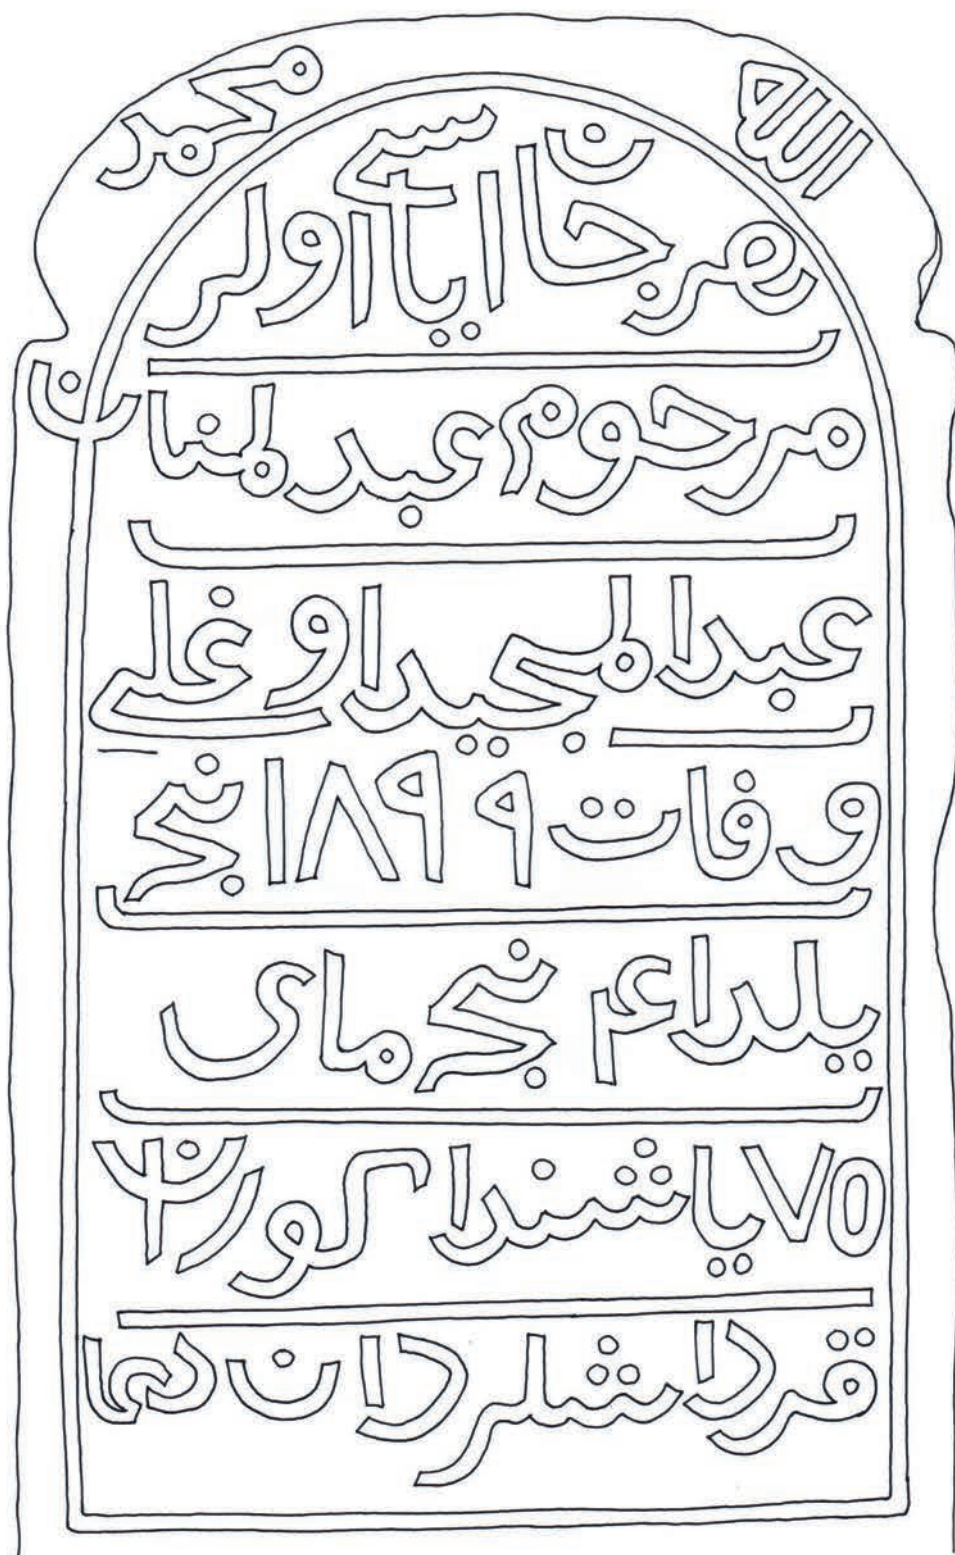 الله محمد
هر جان اياسے اولر
مرحوم عبدلمنان
عبدالمجيد اوغلے
وفات ١٨٩٩ نجے
يلدا ٤ نجے ماى
٧٥ ياشندا كوران
قرداشلردان دعا